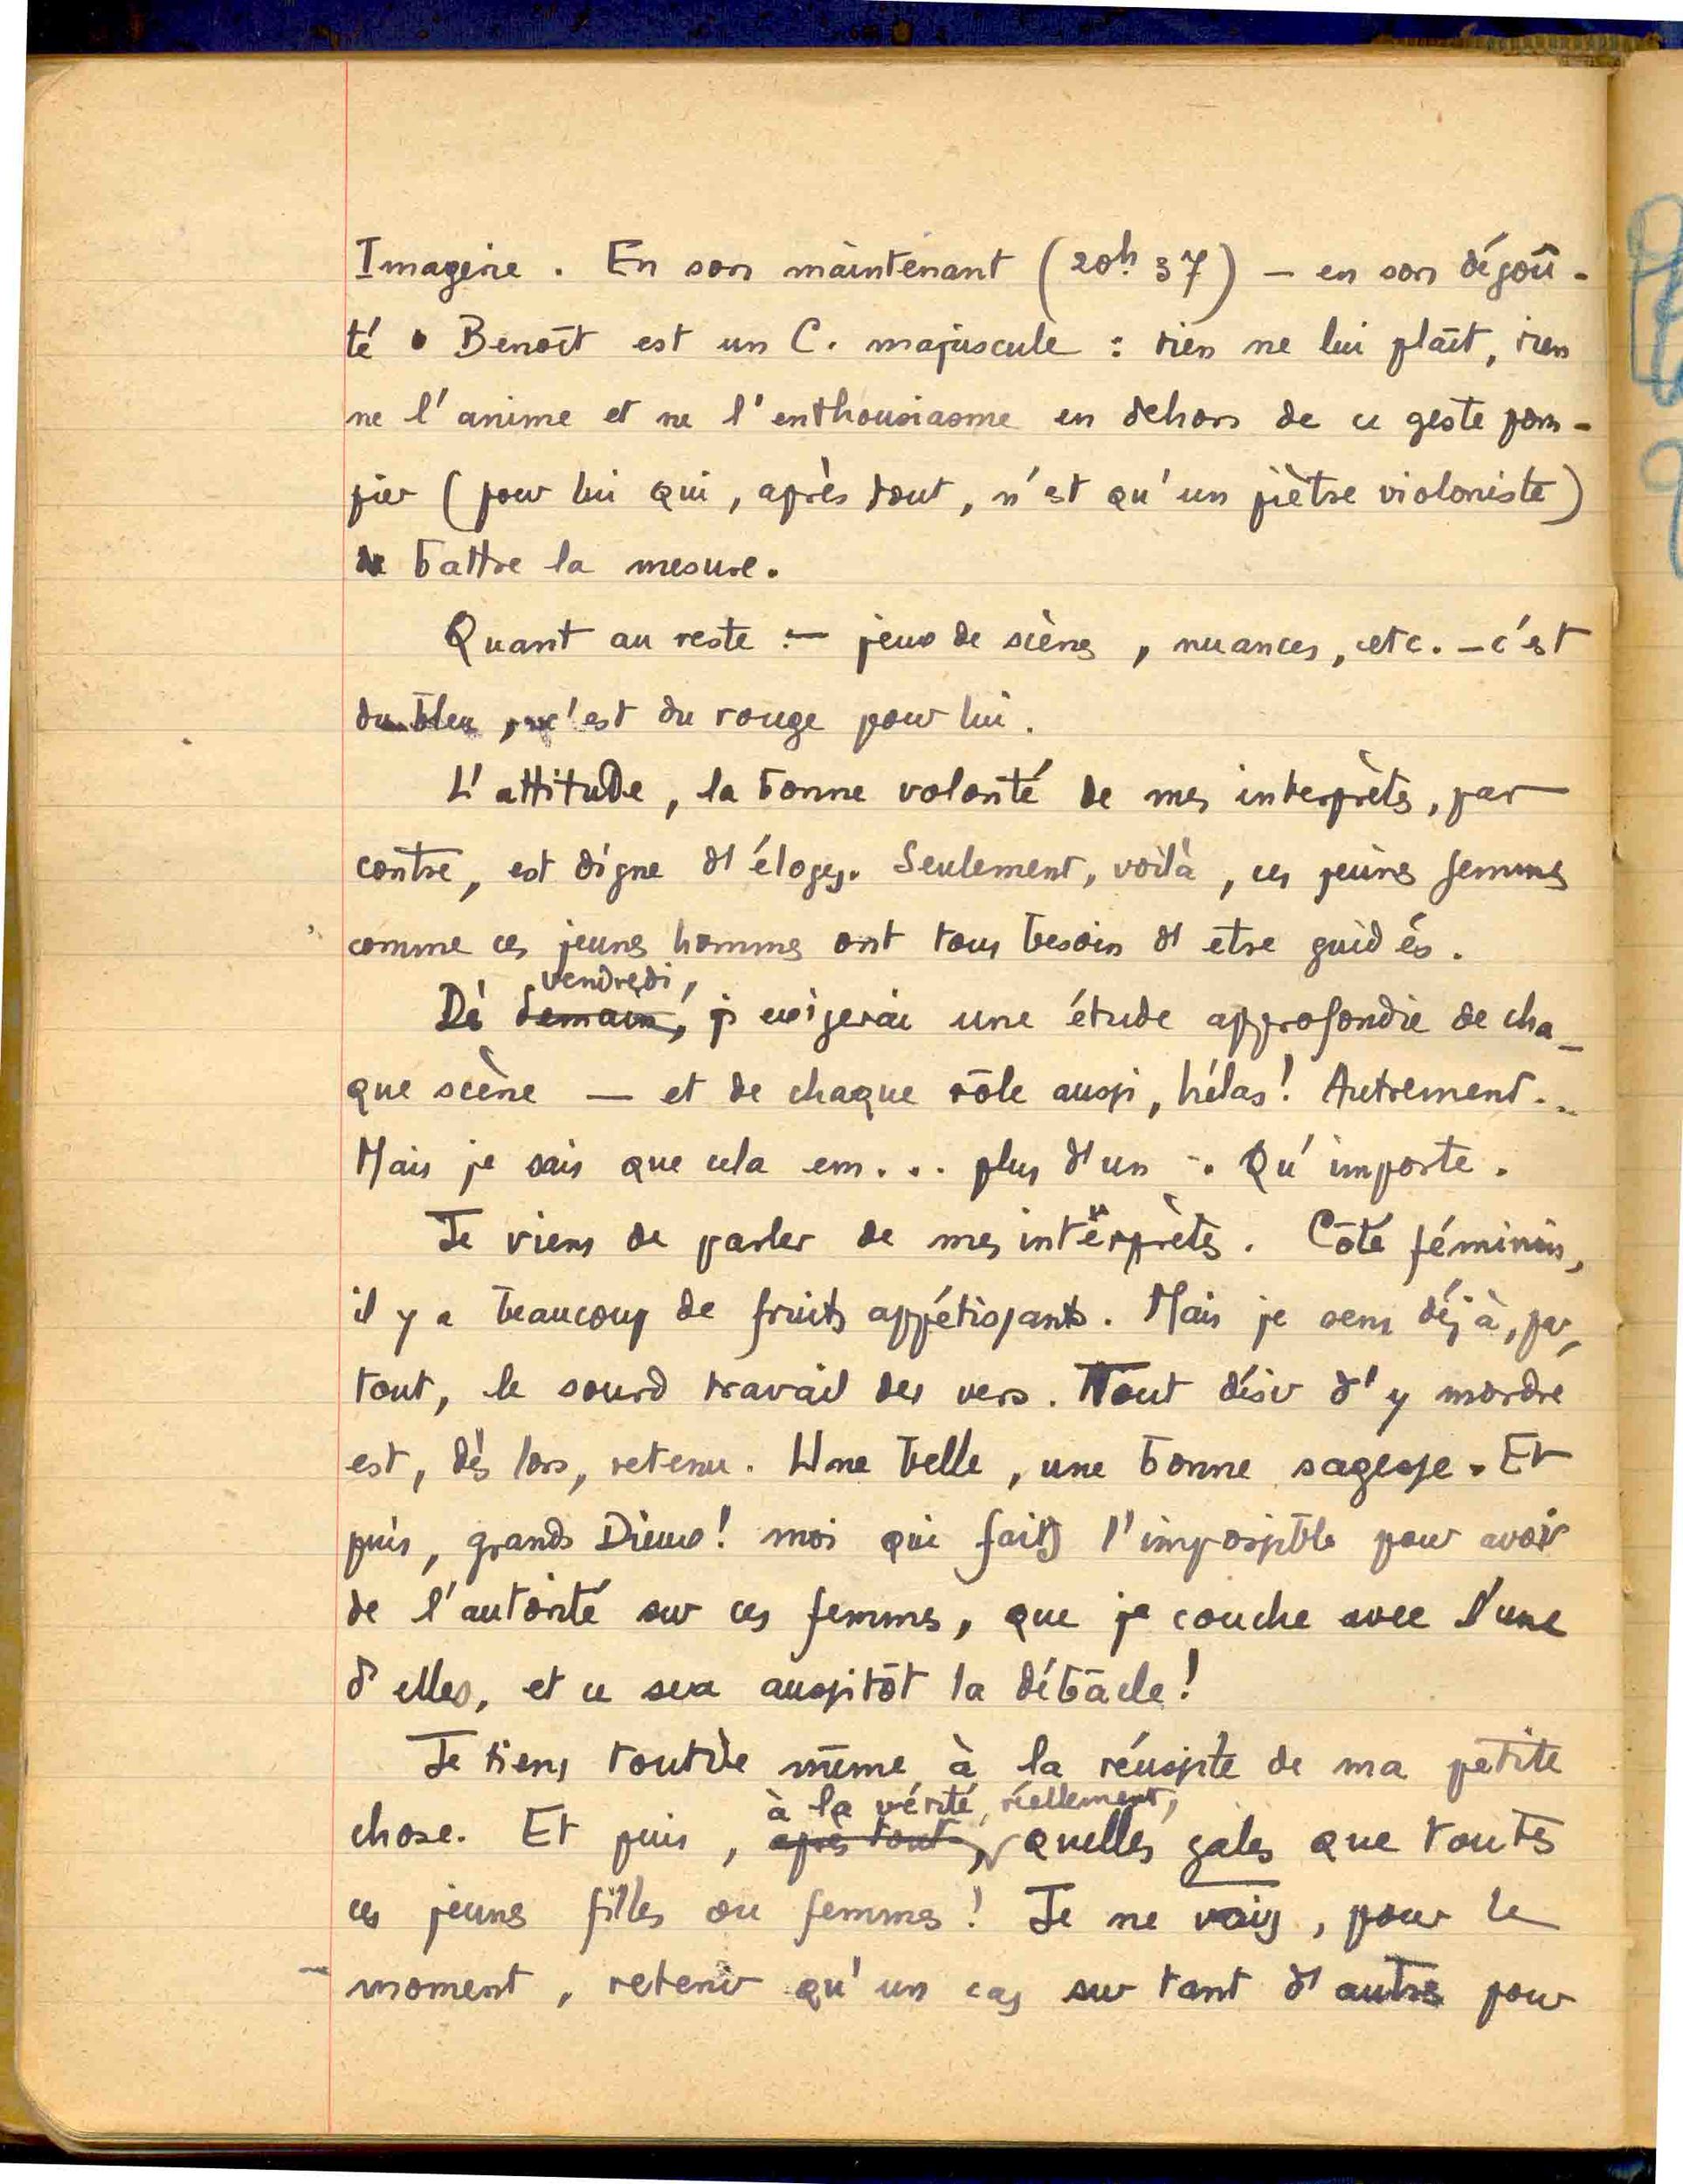 Imagerie. En sors maintenant (20h. 37) – en sors dégoû-
té. Benoît est un C. majuscule : rien ne lui plaît, rien
ne l'anime et ne l'enthousiasme en dehors de ce geste pom-
pier (pour lui qui, après tout, n'est qu'un piètre violoniste)
de battre la mesure.
Quant au reste – jeux de scène, nuances, etc. – c'est
du bleu, c'est du rouge pour lui.
L'attitude, la bonne volonté de mes interprètes, par
contre, est digne d'éloges. Seulement, voilà, ces jeunes femmes
comme ces jeunes hommes ont tous besoin d'etre guidés.
vendredi,
Dè demain, j'exigerai une étude approfondie de cha-
que scène — et de chaque rôle aussi, hélas! Autrement...
Mais je sais que cela em... plus d'un. Qu'importe.
Je viens de parler de mes interprètes. Côté féminin,
il y a beaucoup de fruits appétissants. Mais je sens déjà, par-
tout, le sourd travail des vers. Tout désir d'y mordre
est, dès lors, retenu. Une belle, une bonne sagesse. Et
puis, grands Dieux! moi qui fais l'impossible pour avoir
de l'autorité sur ces femmes, que je couche avec l'une
d'elles, et ce sera aussitôt la débâcle!
Je tiens tout de même à la réussite de ma petite
à la vérité, réellement,
chose. Et puis, après tout, quelles gales que toutes
ces jeunes filles ou femmes! Je ne vais, pour le
moment, retenir qu'un cas sur tant d'autres pour